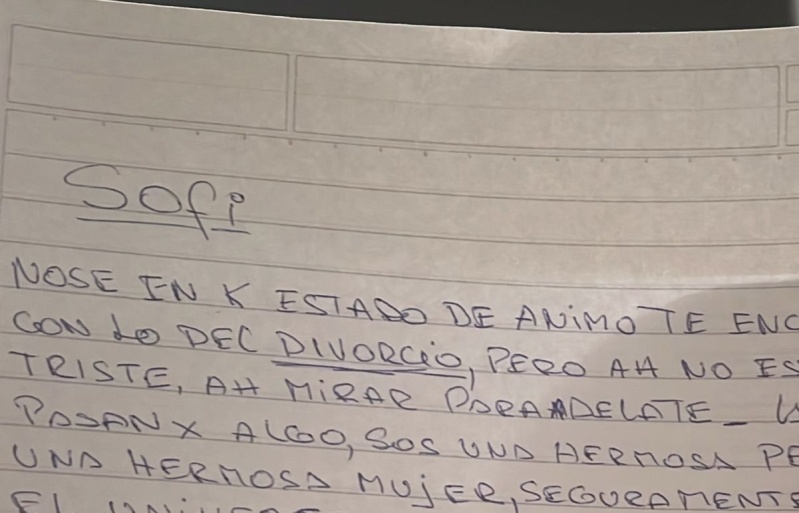 Sofi
NOSE EN K ESTADO DE ANIMO TE ENC
CON LO DEL DIVORCIO, PERO AH NO ES
TRISTE, AH MIRAR PARA ADELATE_
PASAN X ALGO, SOS UNA HERMOSA PE
UNA HERMOSA MUJER, SEGURAMENTE
El